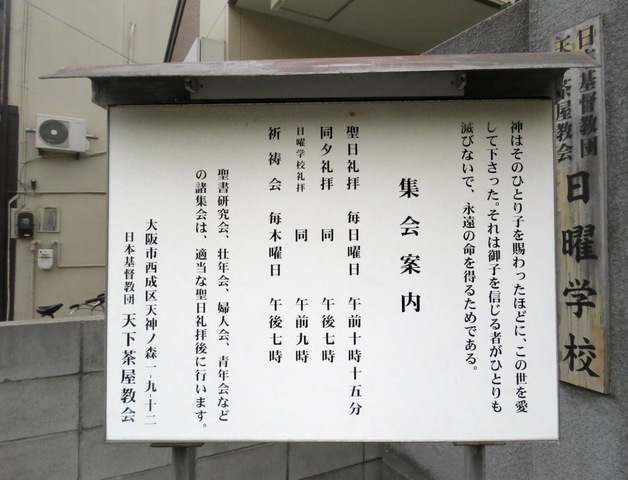 神はそのひとり子を賜わったほどに、この世を愛
して下さった。それは御子を信じる者がひとりも
滅びないで、永遠の命を得るためである。
集会案内
聖日礼拝 毎日曜日 午前十時十五分
同夕礼拝 同 午後七時
日曜学校礼拝 同 午前九時
祈祷会 毎木曜日 午後七時
聖書研究会、壮年会、婦人会、青年会など
の諸集会は、適当な聖日礼拝後に行います。
大阪市西成区天神ノ森一-九-十二
日本基督教団 天下茶屋教会
日本基督教団
天下茶屋教会
日曜学校